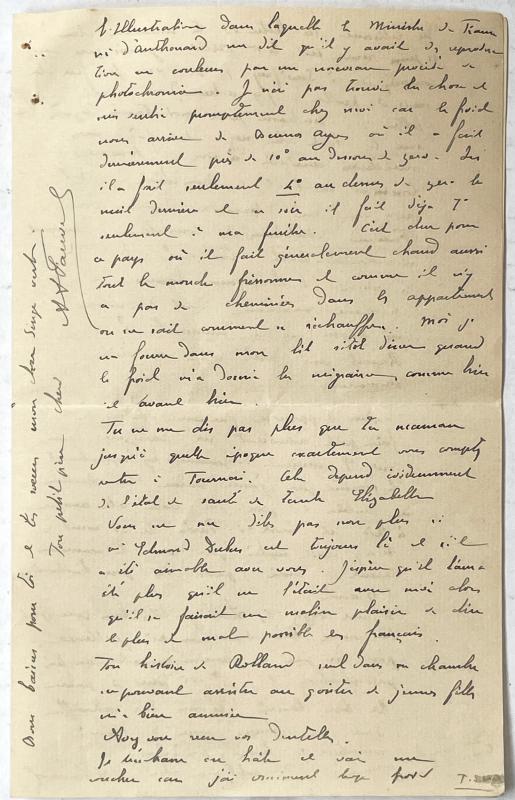 l'Illustration dans laquelle le Ministre de France
M. d'Anthouard me dit qu'il y avait des reproduc
tion en couleurs par un nouveau procédé de
photochromie. Je n'ai pas trouvé la chose et
suis rentré promptement chez moi car le froid
nous arrive de Buenos Ayres où il a fait
dernièrement près de 10° au dessous de zéro. Ici
il a fait seulement 4° au dessus de zéro la
nuit dernière et ce soir il fait déjà 7°
seulement à ma fenêtre. C'est dur pour
ce pays où il fait généralement chaud aussi
tout le monde frissonne et comme il n'y
a pas de cheminées dans les appartements
on ne sait comment se réchauffer. Moi je
me fourre dans mon lit sitôt dîner quand
le froid m'a donné la migraine comme hier
et avant hier.
Tu ne me dis pas plus que ta maman
jusqu'à quelle époque exactement vous comptez
rester à Tournai. Cela dépend évidemment
de l'état de santé de tante Elizabeth
Vous ne me dites pas non plus si
Edmond est toujours là et s'il
a été aimable avec vous. J'espère qu'il l'aura
été plus qu'il ne l'était avec moi alors
qu'il se faisait un malin plaisir de dire
le plus de mal possible des français.
Ton histoire de Rolland seul dans sa chambre
ne pouvant assister au goûter de jeunes filles
m'a bien amusé
Avez vous reçu vos dentelles.
Je en hâte et vais me
coucher car j'ai vraiment trop froid
bons baisers pour toi et tes soeurs mon cher
Ton petit père chéri